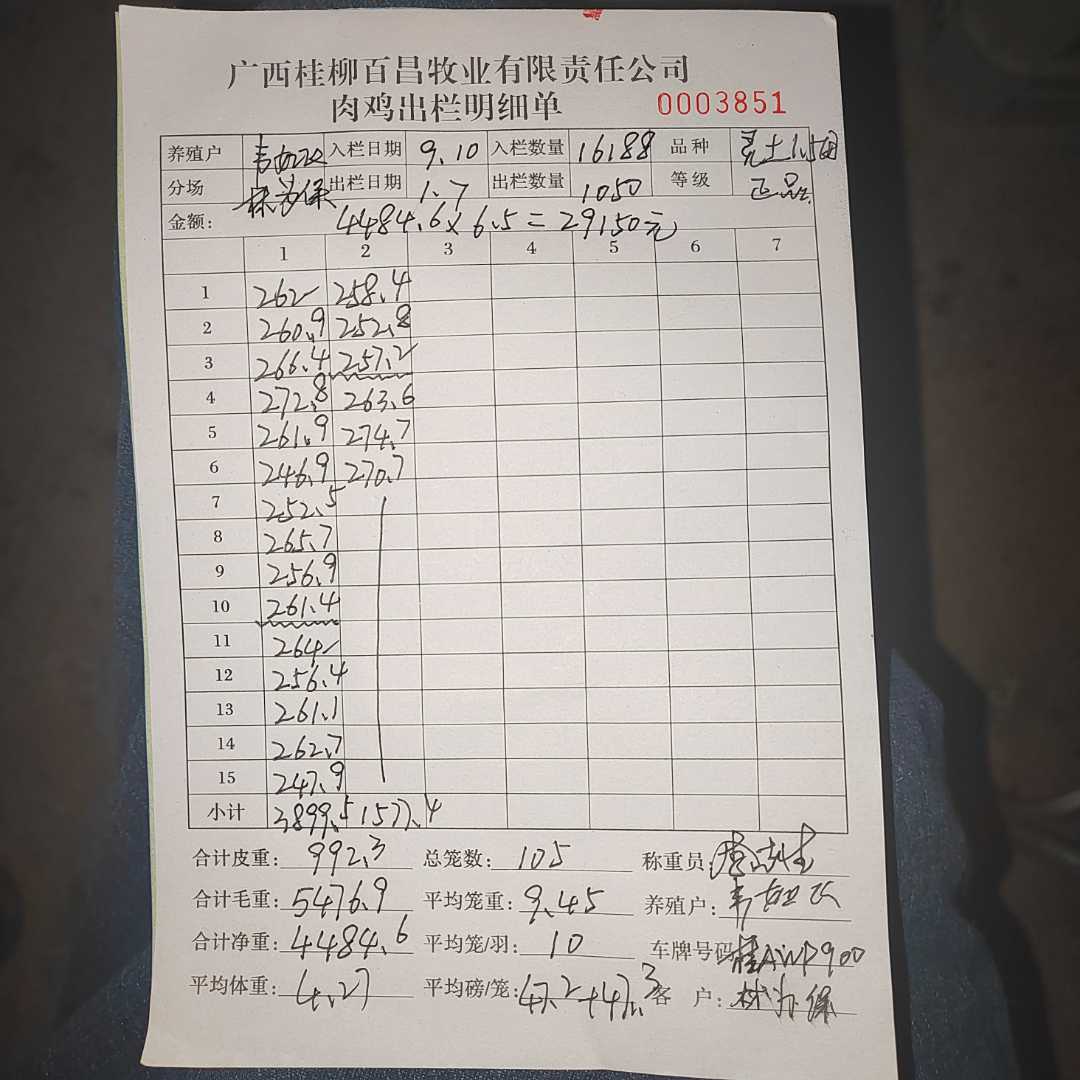 广西桂柳百昌牧业有限责任公司
肉鸡出栏明细单 0003851
养殖户 入栏日期 9.10 入栏数量 16188 品种
分场 出栏日期 1.7 出栏数量 1050 等级 正品
金额: 4484.6×6.5=29150元
1 2 3 4 5 6 7
1 262 258.4
2 260.9 252.8
3 266.4 257.2
4 272.8 263.6
5 261.9 274.7
6 246.9 270.7
7 252.5
8 265.7
9 256.9
10 261.4
11 264
12 256.4
13 261.1
14 262.7
15 247.9
小计 3899.5 1577.4
合计皮重: 992.3 总笼数: 105 称重员:
合计毛重: 5476.9 平均笼重: 9.45 养殖户:
合计净重: 4484.6 平均笼/羽: 10 车牌号码 桂AWP900
平均体重: 4.27 平均磅/笼: 47.2+47.3 客 户: